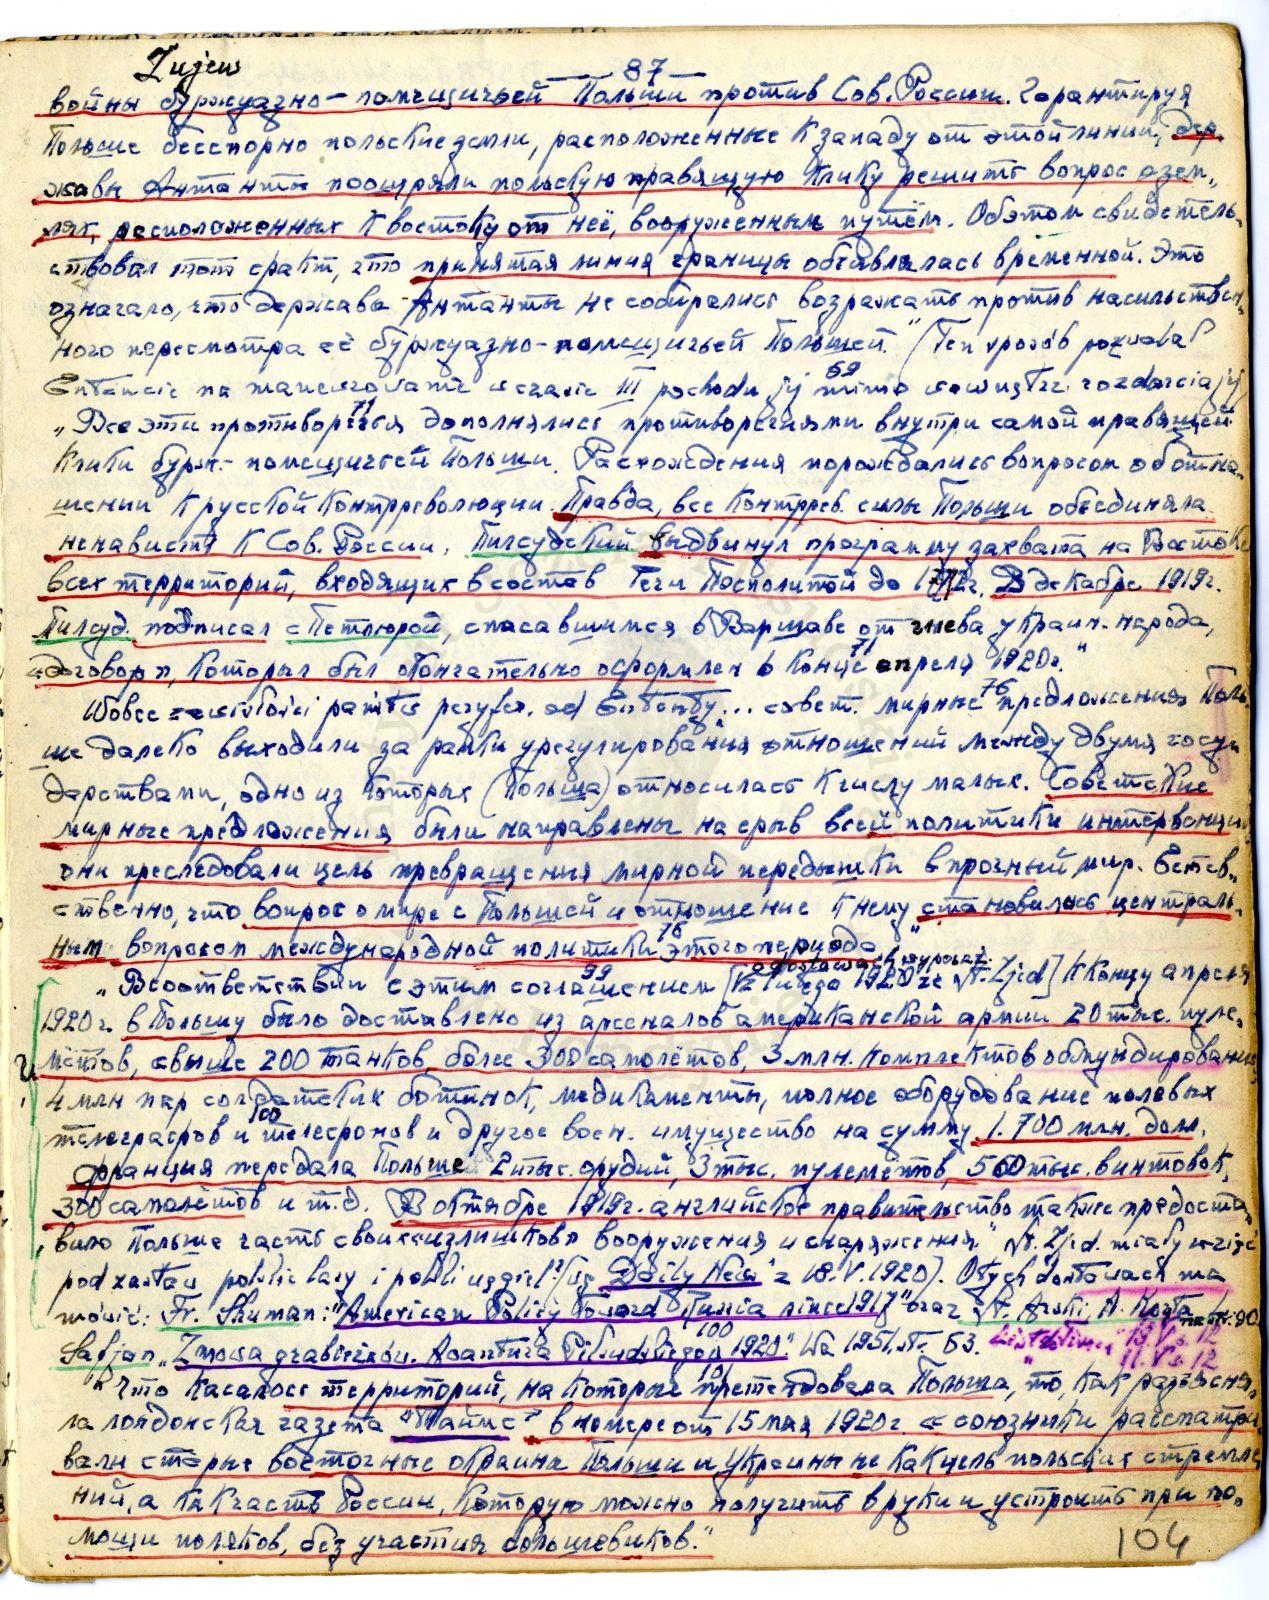 Zujew
— 87 —
войны буржуазно-помещичьей Польши против Сов. России. Гарантируя
Польше бесспорно польские земли, расположенные к западу от этой линии, дер-
жавы Антанты поощряли польскую правящую клику решить вопрос о зем-
лях, расположенных к востоку от неё, вооруженным путём. Об этом свидетель-
ствовал тот факт, что принятая линия границы объявлялась временной. Это
означало, что державы Антанты не собирались возражать против насильствен-
ного пересмотра её буржуазно-помещичьей Польшей." (Ten sposób pozwalał
Entencie na manewrowanie w czasie III pochodu jej mimo wewnętrz. rozdarcia jej)
69
„Все эти противоречия дополнялись противоречиями внутри самой правящей
71
клики бурж.-помещичьей Польши. Расхождения порождались вопросом об отно-
шении к русской контрреволюции. Правда, все контррев. силы Польши объединяла
ненависть к Сов. России. Пилсудский выдвинул программу захвата на Востоке
всех территорий, входящих в состав Речи Посполитой до 1772г. В декабре 1919г.
Пилсуд. подписал с Петлюрой, спасавшимся в Варшаве от гнева украин. народа,
«договор», который был окончательно оформлен в конце апреля 1920г."
71
Wobec zawisłości państw peryfer. od Ententy... „совет. мирные предложения Поль-
76
ше далеко выходили за рамки урегулирования отношений между двумя госу-
дарствами, одно из которых (Польша) относилась к числу малых. Советские
мирные предложения были направлены на срыв всей политики интервенции,
они преследовали цель превращения мирной передышки в прочный мир. Естев-
ственно, что вопрос о мире с Польшей и отношение к нему становились централь-
ным вопросом международной политики этого периода"
76
„В соответствии с этим соглашением [z lutego 1920 ze St. Zjed] к концу апреля
99
o dostawach
1920г. в Польшу было доставлено из арсеналов американской армии 20 тыс. пуле-
мётов, свыше 200 танков, более 300 самолётов, 3 млн. комплектов обмундирования,
4 млн пар солдатских ботинок, медикаменты, полное оборудование полевых
телеграфов и телефонов и другое воен. имущество на сумму 1.700 млн. долл.
100
Франция передала Польше 2 тыс. орудий, 3 тыс. пулемётов, 560 тыс. винтовок,
300 самолётов и т.д. В октябре 1919г. английское правительство также предоста-
вило Польше часть своих «излишков» вооружения и снаряжения." St. Zjed. miały wziąć
pod zastaw polskie lasy i pokłady węgla? (wg „Daily News" z 18.V.1920). O tych dostawach ma
mówić: Fr. Shuman: "American Policy Toward Russia since 1917" oraz St. Arski, A. Korta i
na str. 90
Safjan „Zmowa grabieżców. Awantura Piłsudskiego 1920". Wa 1951, st. 63.
100
"Что касалось территорий, на которые претендовала Польша, то, как разъясня-
101
ла лондонская газета "Таймс" в номере от 15 мая 1920г. «союзники рассматри-
вали старые восточные окраины Польши и Украины не как цель польских стремле-
ний, а как часть России, которую можно получить в руки и устроить при по-
мощи поляков, без участия большевиков."
104